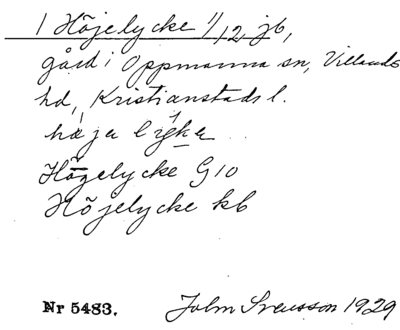 1 Höjelycke 1/12 jb,
gård i Oppmanna sn, Villands
hd, Kristianstads l.
hæja lyka
Högelycke G10
Höjelycke kb
Nr 5483. John Svensson 1929